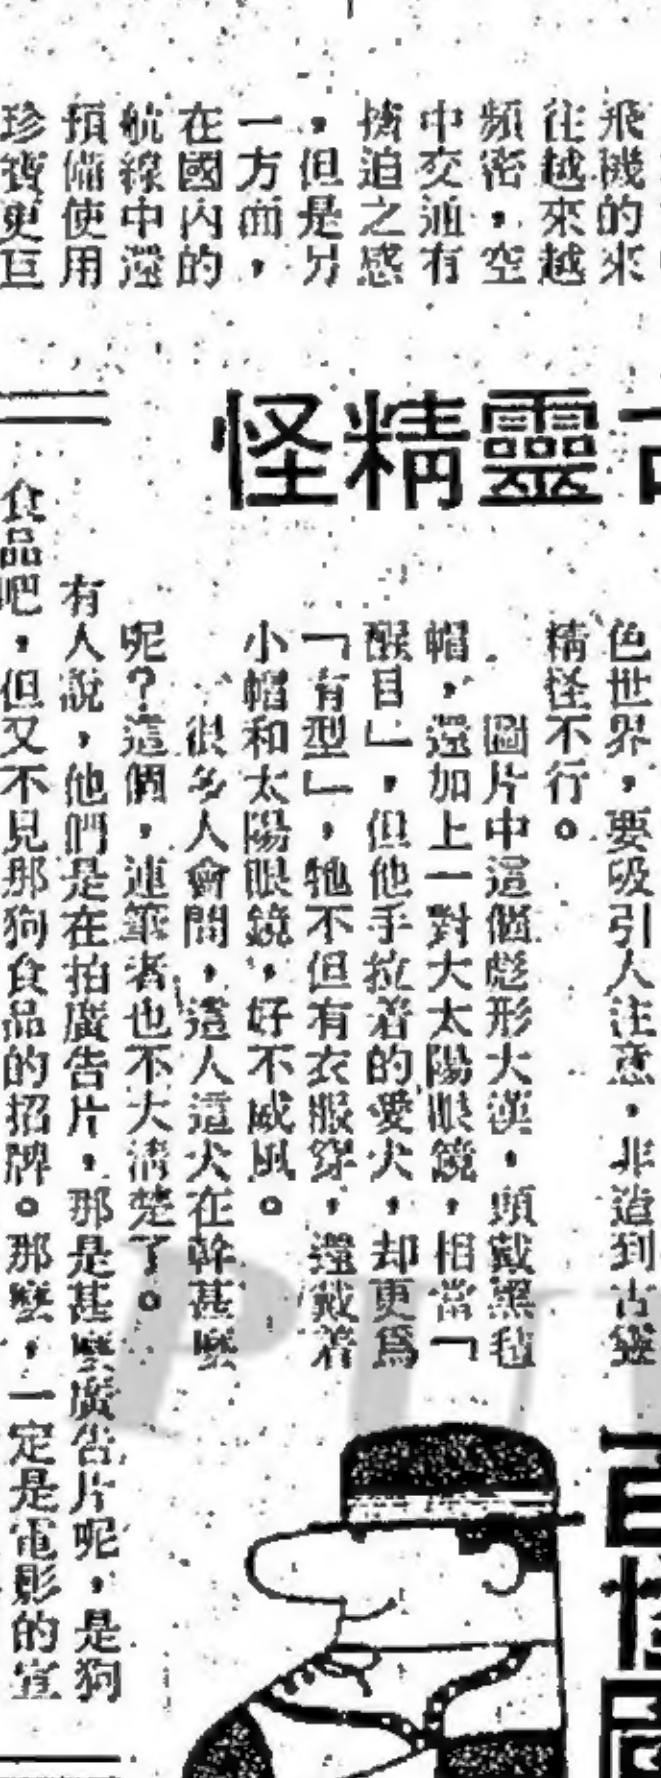 飛機的來
往越來越
頻密，空
中交通有
擠迫之感
，但是另
一方面，
在國內的
航線中還
預備使用
珍寶更巨
怪精靈古
色世界，要吸引人注意，非造到古靈
精怪不行。
圖片中這個彪形大漢，頭戴黑毡
帽，還加上一對大太陽眼鏡，相當「
醒目」，但他手拉着的愛犬，却更爲
「有型」，牠不但有衣服穿，還戴着
小帽和太陽眼鏡，好不威風。
很多人會問，這人這犬在幹甚麼
呢？這個，連筆者也不大清楚了。
有人說，他們是在拍廣告片，那是甚麼廣告片呢，是狗
食品吧，但又不見那狗食品的招牌。那麼，一定是電影的宣